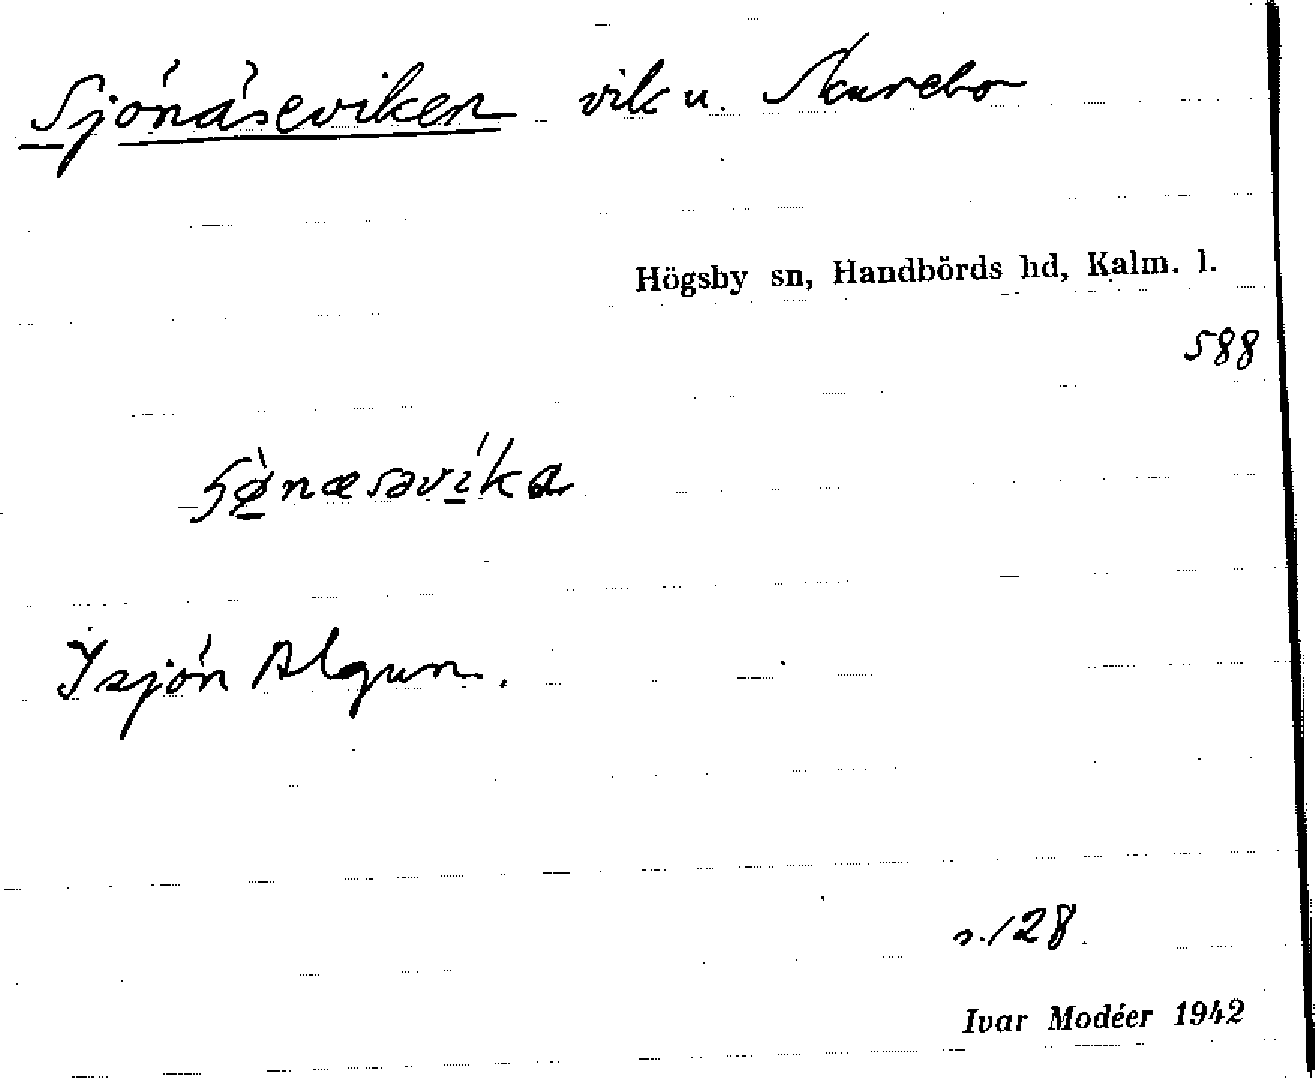 Sjönäseviken vik u. Skurebo
Högsby sn, Handbörds hd, Kalm. l.
588
Ysjön Algun.
s. 128
Ivar Modéer 1942